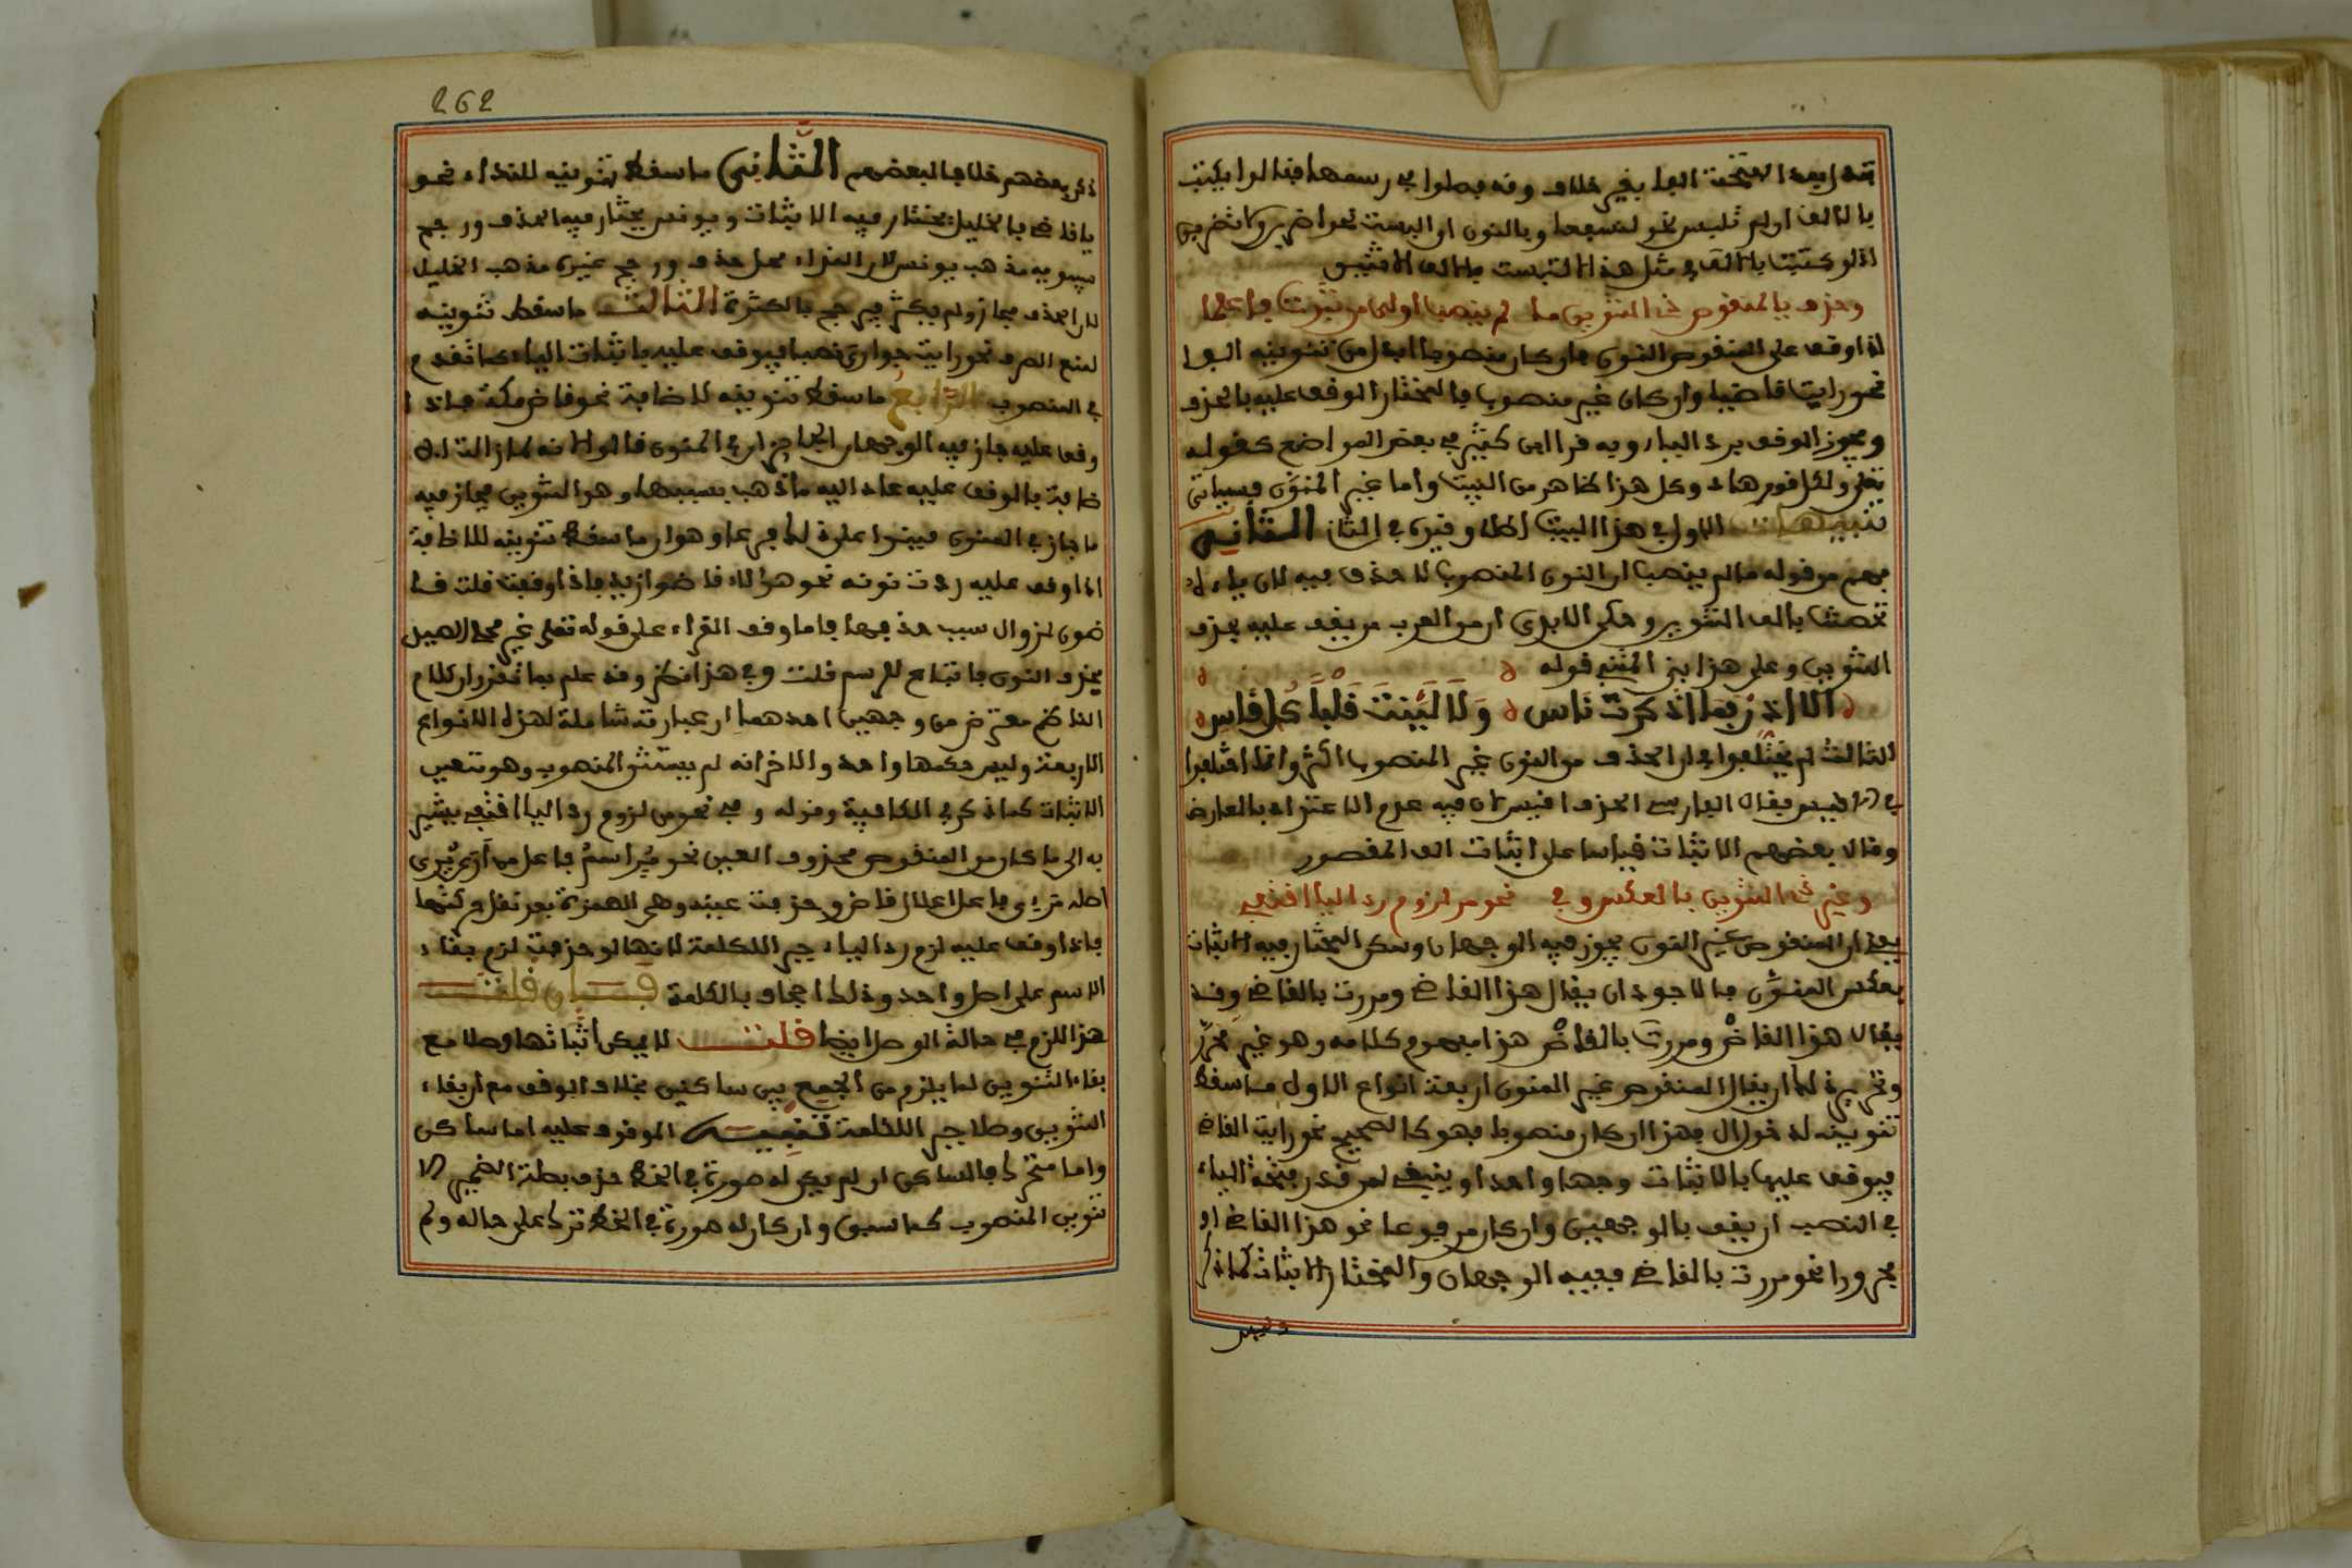 تبدل بعد الفتحة الفا بغير خلاف وقد فصلوا في رسمها فقالوا يكتب
بالالف ان لم تلبس نحو لنسفعا وبالنون ان البست نحو اضربن واشربن
اذ لو كتبت بالالف في مثل هذا التبست بالف الاثنين
وحذف يا المنقوص ذي التنوين ما لم ينصب اولى من ثبوت فاعلما
اذا وقف على المنقوص المنون فان كان منصوبا ابدل من تنوينه الفا
نحو رايت قاضيا وان كان غير منصوب فالمختار الوقف عليه بالحذف
ويجوز الوقف برد الياء وبه قرا ابن كثير في بعض المواضع كقوله
تعلى ولكل قوم هاد وكل هذا ظاهر من البيت واما غير المنون فسياتي
تنبيهات الاول في هذا البيت اطلاق وقيده في الثان الثاني
فهم من قوله ما لم ينصب ان المنون المنصوب لا حذف فيه لان ياءه
تحصنت بالف التنوين وحكى الابدي ان من العرب من يقف عليه بحذف
التنوين وعلى هذا بنى المتنبي قوله
الا اذن فما اذكرت ناس ولا لينت قلبا كل قاس
الثالث لم يختلفوا في ان الحذف من المنون غير المنصوب اكثر وانما اختلفوا
في الاقيس فقال الفارسي الحذف اقيس لان فيه عدم الاعتداد بالعارض
وقال بعضهم الاثبات قياسا على اثبات الف المقصور
وغير ذي التنوين بالعكس وفي نحو مر لزوم رد اليا اقتفي
يعني ان المنقوص غير المنون يجوز فيه الوجهان ولكن المختار فيه الاثبات
بعكس المنون فالاجود ان يقال هذا القاضي ومررت بالقاضي وقد
يقال هذا القاض ومررت بالقاض هذا مفهوم كلامه وهو غير محرر
وتحريره لك ان يقال المنقوص غير المنون اربعة انواع الاول ما سقط
تنوينه لدخول ال فهذا ان كان منصوبا فهو كالصحيح نحو رايت القاضي
فيوقف عليها بالاثبات وجها واحدا وينبغي لمن قدر فتحة الياء
في النصب ان يقف بالوجهين وان كان مرفوعا نحو هذا القاضي او
مجرورا نحو مررت بالقاضي ففيه الوجهان والمختار الاثبات كما ذكر
262
ذكر بعضهم خلافا لبعضهم الثاني ما سقط تنوينه للنداء نحو
يا قاضي فالخليل يختار فيه الاثبات ويونس يختار فيه الحذف ورجح
سيبويه مذهب يونس لان النداء محل حذف ورجح غيره مذهب الخليل
لان الحذف مجاز ولم يكثر فيرجح بالكثرة الثالث ما سقط تنوينه
لمنع الصرف نحو رايت جواري نصبا فيوقف عليه باثبات الياء كما تقدم
في المنصوب الرابع ما سقط تنوينه للاضافة نحو قاض مكة فاذا
وقف عليه جاز فيه الوجهان الجائزان في المنون قالوا لانه لما زالت الا
ضافة بالوقف عليه عاد اليه ما ذهب بسببها وهو التنوين فجاز فيه
ما جاز في المنون فبنوا على ذلك فرعا وهو ان ما سقط تنوينه للاضافة
اذا وقف عليه ردت نونه نحو هؤلاء قاضوا زيد فاذا وقفت قلت قا
ضون لزوال سبب حذفها فاما وقف القراء على قوله تعلى غير محلي الصيد
بحذف النون فاتباع للرسم قلت وفي هذا نظر وقد علم بما تقرر ان كلام
الناظم معترض من وجهين احدهما ان عبارته شاملة لهذه الانواع
الاربعة وليس حكمها واحد والاخر انه لم يستثن المنصوب وهو متعين
الاثبات كما ذكر في الكافية وقوله وفي نحو مر لزوم رد اليا اقتفي يشير
به الى ما كان من المنقوص محذوف العين نحو مر اسم فاعل من ارى يرى
اصله مرئي فاعل اعلال قاض وحذفت عينه وهي الهمزة بعد نقل حركتها
فاذا وقف عليه لزم رد الياء جبرا للكلمة لانها لو حذفت لزم بقاء
الاسم على اصل واحد وذلك اجحاف بالكلمة فان قلت
هذا لازم في حالة الوصل ايضا قلت لا يمكن اثباتها وصلا مع
بقاء التنوين لما يلزم من الجمع بين ساكنين بخلاف الوقف مع ان بقاء
التنوين وصلا جبر للكلمة تنبيه الموقوف عليه اما ساكن
واما متحرك فالساكن ان لم يكن له صورة في الخط حذف بصلة الضمير الا
تنوين المنصوب كما سبق وان كان له صورة في الخط ترك على حاله ولم